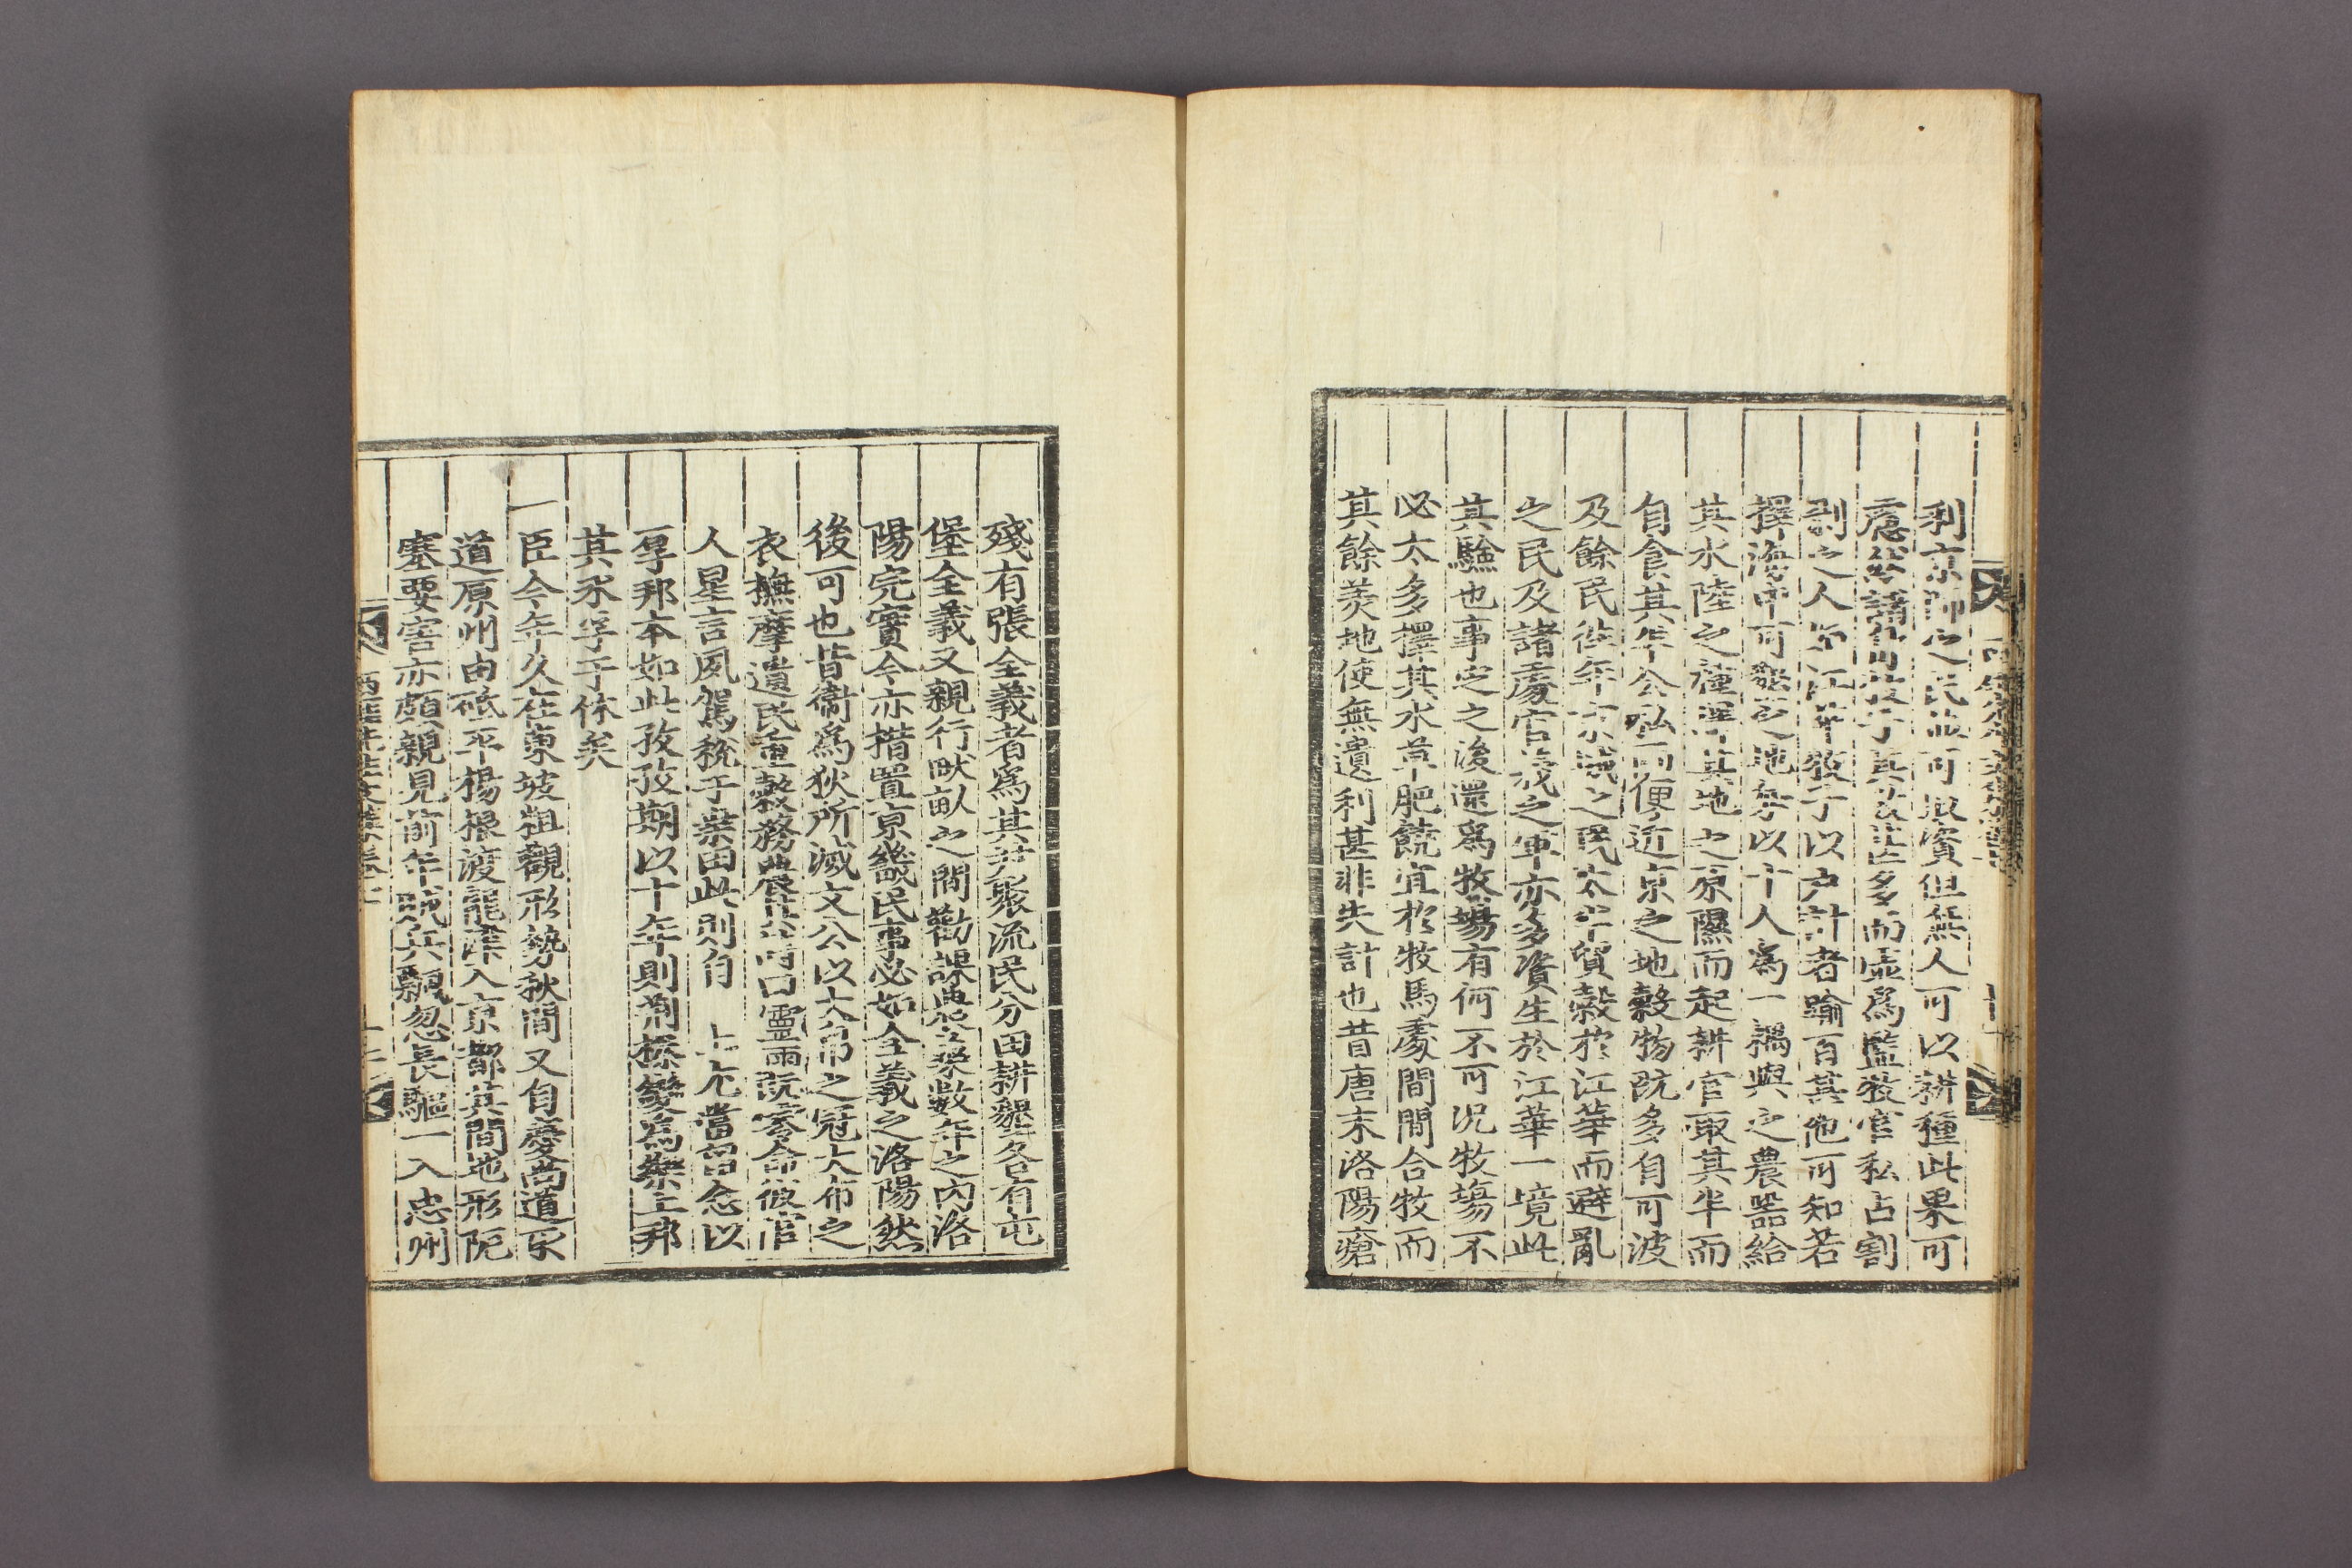 利京師之民並可取資但無人可以耕種此果可
慮然諸島牧子其數甚多而盡爲監牧官私占割
剝之人如江華牧子以戶計者踰百其他可知若
擇海中可墾之地每以十人爲一耦與之農器給
其水陸之種擇其地之原隰而起耕官取其半而
自食其半公私而便近京之地穀物旣多自可波
及餘民往年京城之民太半貿穀於江華而避亂
之民及諸處官義之軍亦多資生於江華一境此
其驗也事定之後還爲牧場有何不可況牧場不
必太多擇其水草肥饒宜於牧馬處間間合牧而
其餘羨地使無遺利甚非失計也昔唐末洛陽瘡
殘有張全義者爲其尹聚流民分田耕墾各有屯
堡全義又親行畎畝之間勸課農桑數年之內洛
陽完實今亦措置京畿民事必如全義之洛陽然
後可也昔衛爲狄所滅文公以大帛之冠大布之
衣撫摩遺民重穀務農其詩曰靈雨旣零命彼倌
人星言夙駕稅于桑田此則自 上尤當留念以
厚邦本如此孜孜期以十年則荊榛變爲樂土邦
其永孚于休矣
一臣今年久在東坡粗觀形勢秋間又自慶尙道取
道原州由砥平楊根渡龍津入京都其間地形阨
塞要害亦頗親見前年賊兵飄忽長驅一入忠州
西厓先生文集卷十